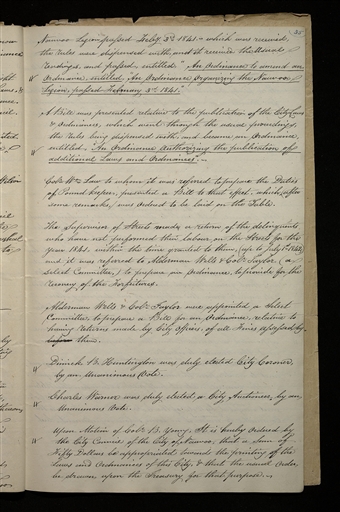 35
Nauvoo Legion, passed Feby. 3rd 1841. - which was received,
the Rules were dispensed with, and it received the usual
readings, and passed, entitled, "An Ordinance to amend an
Ordinance, entitled, An Ordinance Organizing the Nauvoo
Legion, passed February 3rd 1841."
A Bill was presented relative to the publication of the City Laws
& Ordinances, which went through the usual proceedings
the Rules being dispensed with, and became an Ordinance,
entitled, "An Ordinance Authorizing the publication of
additional Laws and Ordinances. -
Colr. Wm. Law to whom it was referred to prepare the Duties
of Pound Keeper, presented a Bill to that effect, which, after
some remarks, was ordered to be laid on the Table.
The Supervisor of Streets made a return of the delinquents
who have not performed their labour on the Streets for the
Year 1841, within the time granted to them, (up to July 1st 1842)
and it was referred to Alderman Wells & Colr. Taylor, (a
Select Committee,) to prepare an Ordinance, to provide for the
recovery of the Forfeitures.
Alderman Wells & Colr. Taylor were appointed a Select
Committee, to prepare a Bill for an Ordinance, relative to
having returns made by City Officers, of all Fines assessed by
them.
Dimick B. Huntington was duly elected City Coroner,
by an Unanimous Vote.
Charles Warner was duly elected a City Auctioneer, by an
Unanimous Vote.
Upon Motion of Colr. B. Young, It is hereby ordered by
the City Council of the City of Nauvoo, that a Sum of
Fifty Dollars be appropriated toward the printing of the
Laws and Ordinances of this City, & that the usual Order
be drawn upon the Treasury for that purpose. -